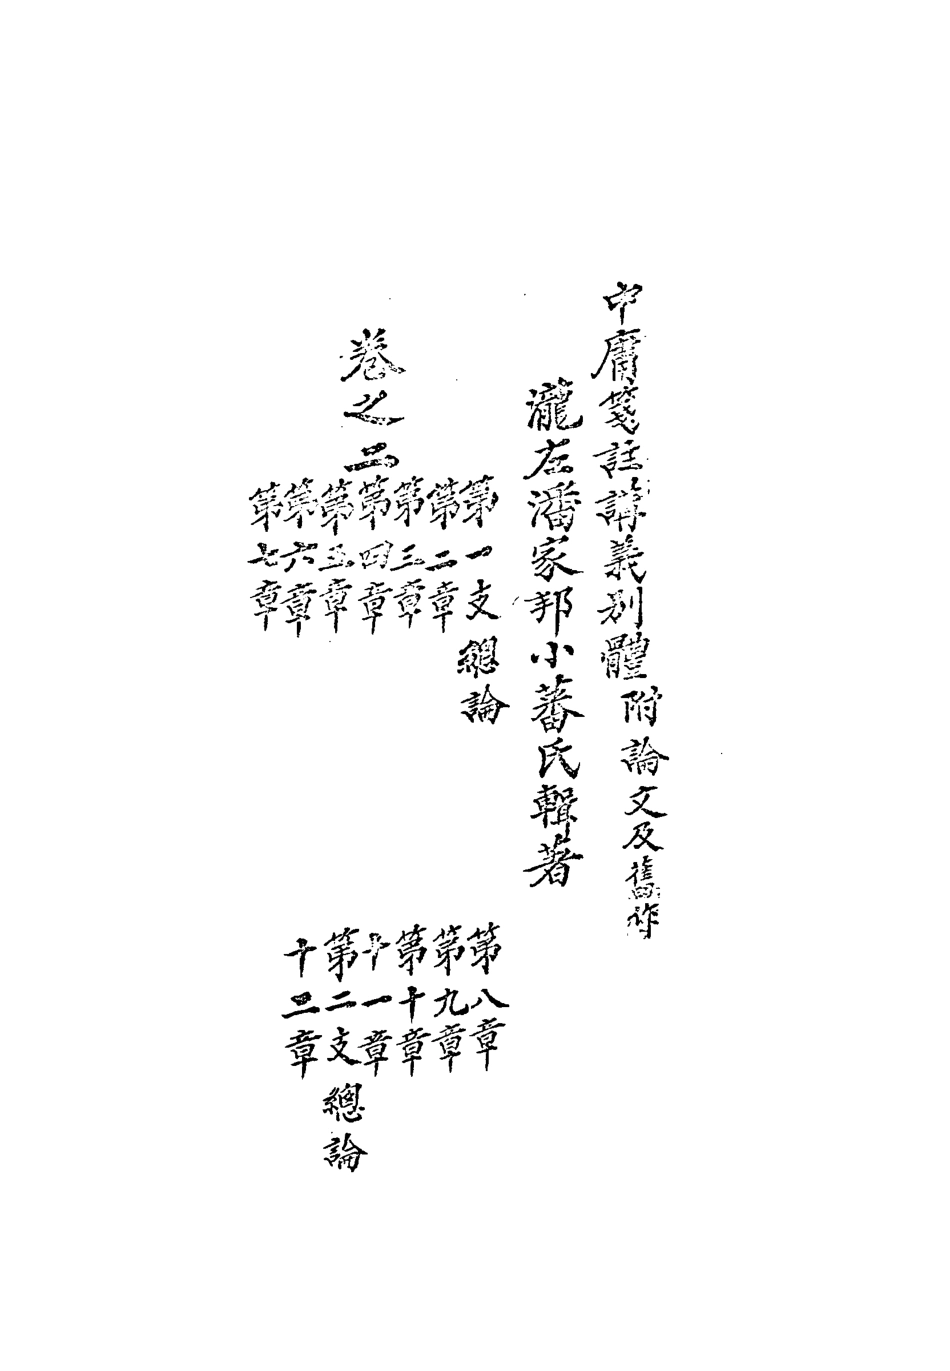 中庸箋註講義別體附論文及舊作
瀧左潘家邦小蕃氏輯著
卷之二
第一支總論
第二章
第三章
第四章
第五章
第六章
第七章
第八章
第九章
第十章
十一章
第二支總論
十二章